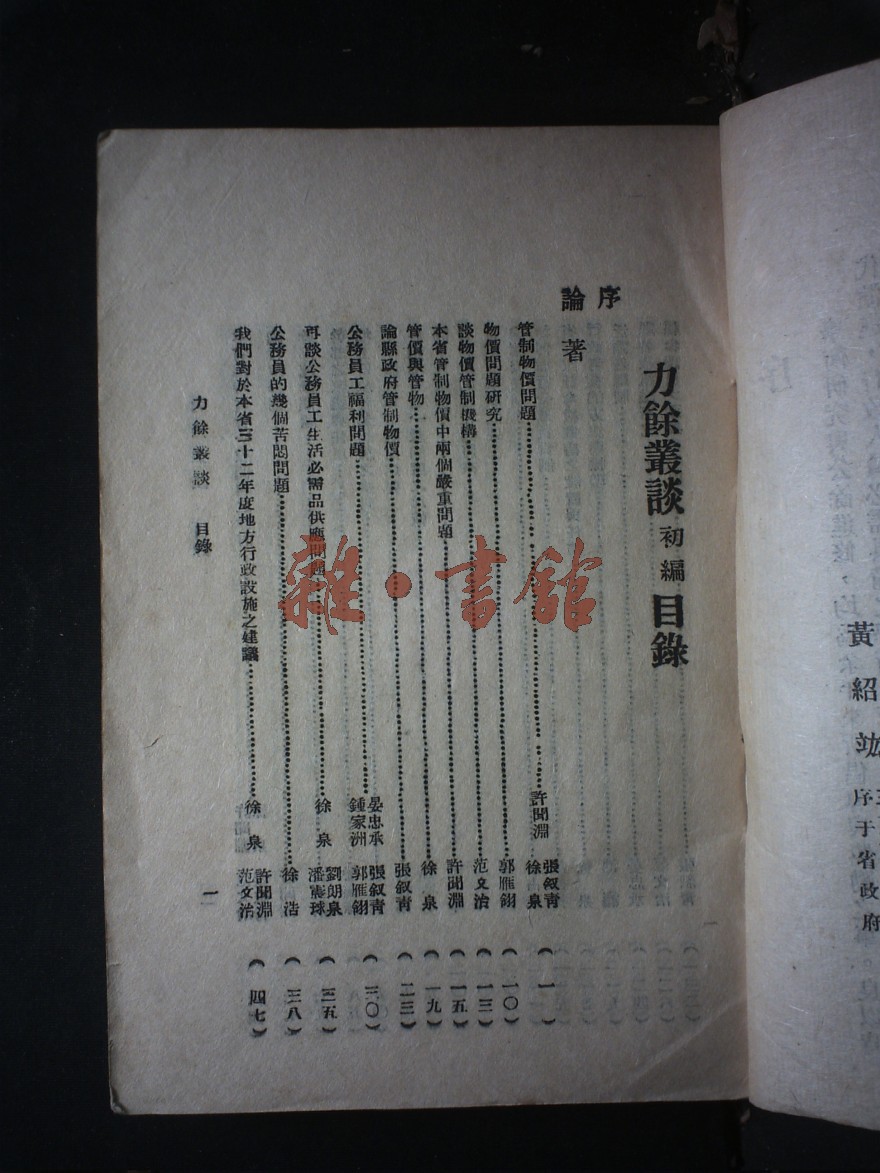 黃紹竑
序于省政府
力餘叢談初編目錄
序
論著
管制物價問題……許聞淵 張叙青 徐泉（一）
物價問題研究……郭雁翎（一〇）
談物價管制機構……范文治（一三）
本省管制物價中兩個嚴重問題……許聞淵（一五）
管價與管物……徐泉（一九）
論縣政府管制物價……張叙青（二三）
公務員工福利問題……晏忠承 鍾家洲 張叙青 郭雁翎（三〇）
再談公務員工生活必需品供應問題……徐泉 劉朗泉 潘憲球（三五）
公務員的幾個苦悶問題……徐浩（三八）
我們對於本省三十二年度地方行政設施之建議……徐泉 許聞淵 范文治（四七）
力餘叢談 目錄
一
雜·書館